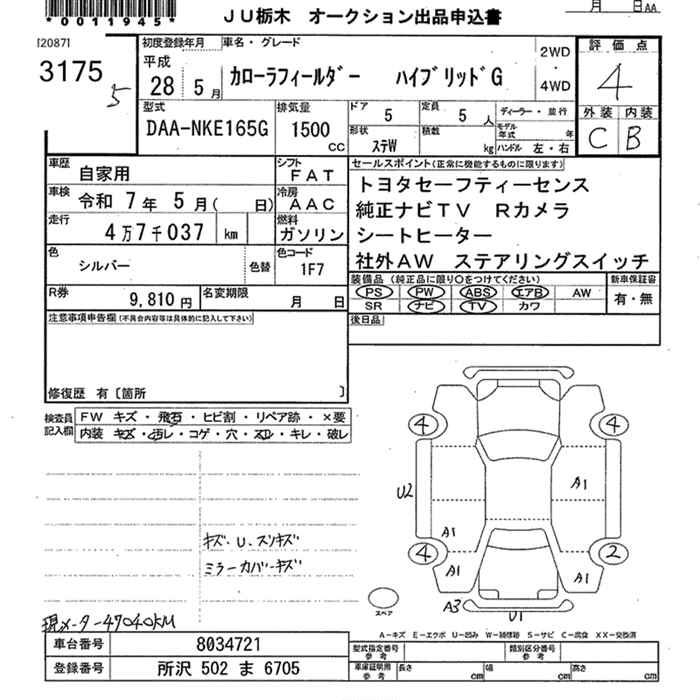 *0011945*
JU栃木 オークション出品申込書
月 日AA
[2087]
3175
5
初度登録年月 車名・グレード
平成
28 5月
カローラフィールダー ハイブリッドG
2WD
・
4WD
評価点
4
外装 内装
C B
型式
DAA-NKE165G
排気量
1500
CC
ドア 5
定員 5人
ディーラー・並行
形状 ステW
積載 kg
モデル年式 年
ハンドル 左・右
車歴 自家用
シフト FAT
セールスポイント(正常に機能するものに限ります)
車検 令和 7年 5月( 日)
冷房 AAC
トヨタセーフティーセンス
純正ナビTV Rカメラ
シートヒーター
社外AW ステアリングスイッチ
走行 4万7千037 km
燃料 ガソリン
色 シルバー 色替
色コード 1F7
装備品 (純正品に限り○をつけてください)
PS PW ABS エアB AW
SR ナビ TV カワ
新車保証書
有・無
R券 9,810円
名変期限 月 日
後日品
注意事項申告欄(不具合内容等は具体的に記入して下さい)
修復歴 有〔箇所 〕
検査員記入欄
FW キズ・飛石・ヒビ割・リペア跡・×要
内装 キズ・汚レ・コゲ・穴・スレ・キレ・破レ
4 4
U2 A1
A1
4 2
A1 A1
A3 U1
スペア
キズ・U・スリキズ
ミラーカバーキズ
現メーター47040KM
A-キズ E-エクボ U-凹み W-補修跡 S-サビ C-腐食 XX-交換済
車台番号 8034721
登録番号 所沢 502 ま 6705
型式指定番号 参考
類別区分番号 参考
車庫証明用 参考
長さ cm 幅 cm 高さ cm